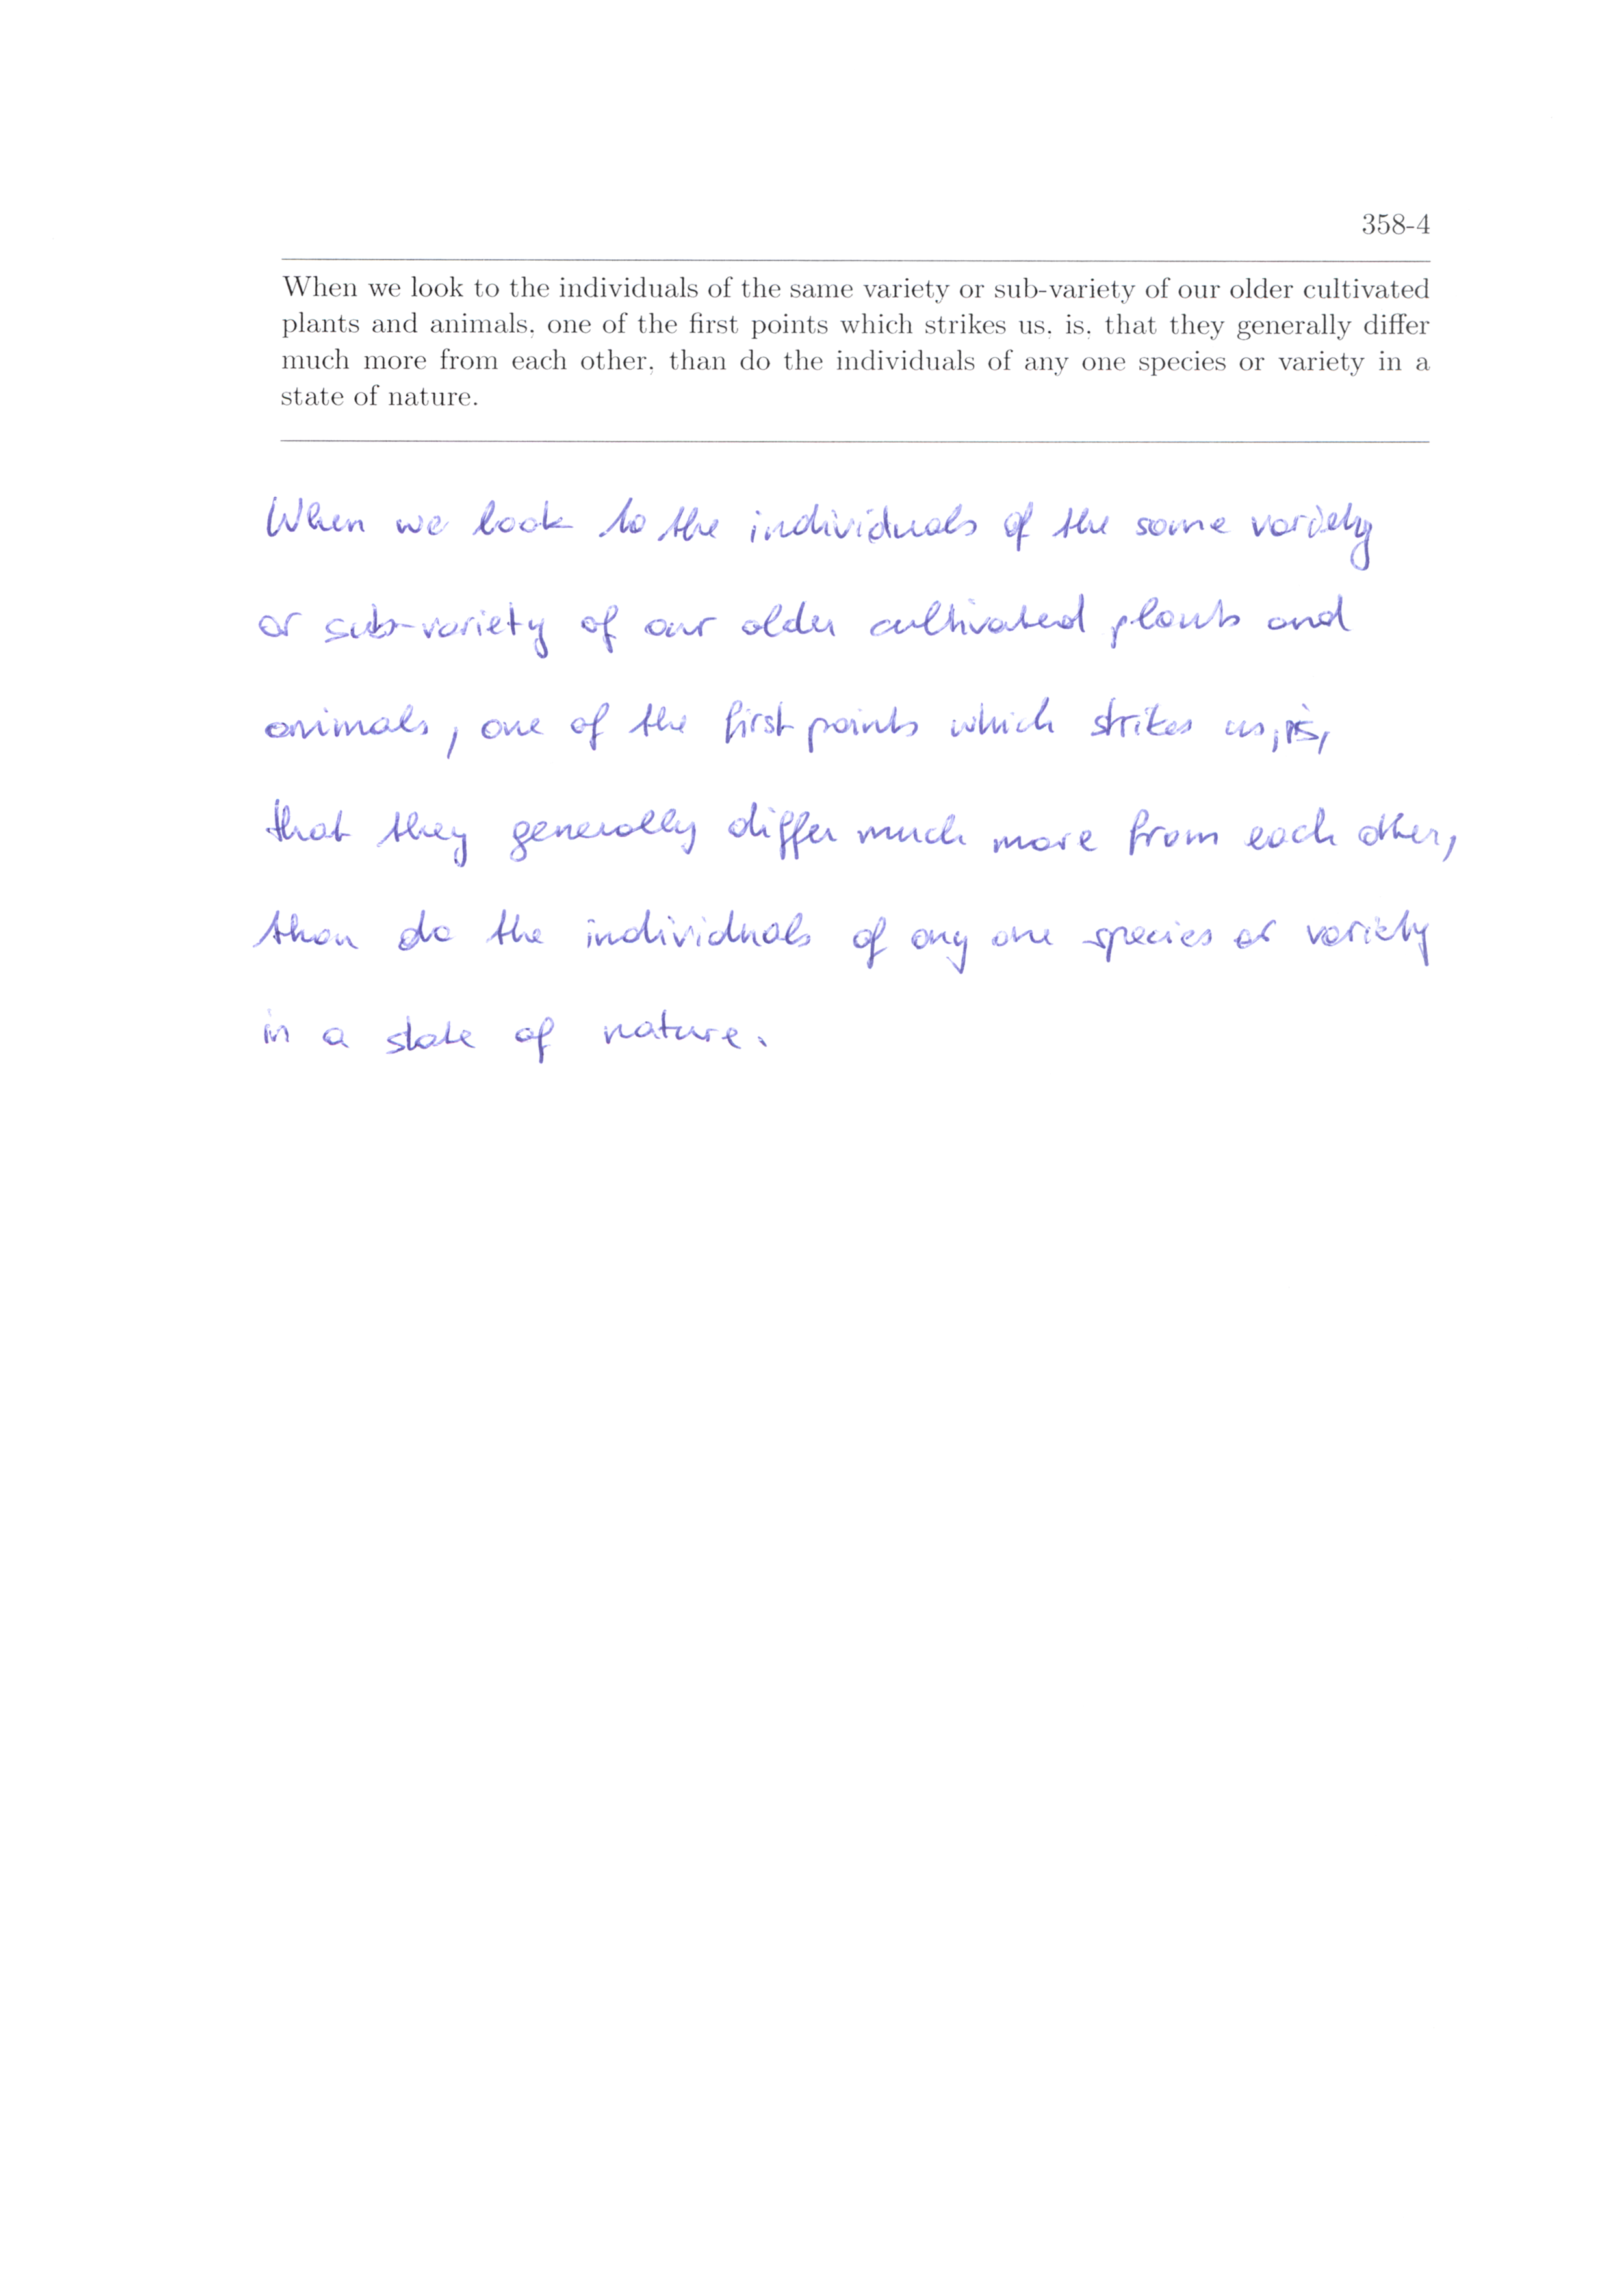 358-4
When we look to the individuals of the same variety or sub-variety of our older cultivated
plants and animals, one of the first points which strikes us, is, that they generally differ
much more from each other, than do the individuals of any one species or variety in a
state of nature.
When we look to the individuals of the same variety
or sub-variety of our older cultivated plants and
animals, one of the first points which strikes us, is,
that they generally differ much more from each other,
than do the individuals of any one species or variety
in a state of nature.